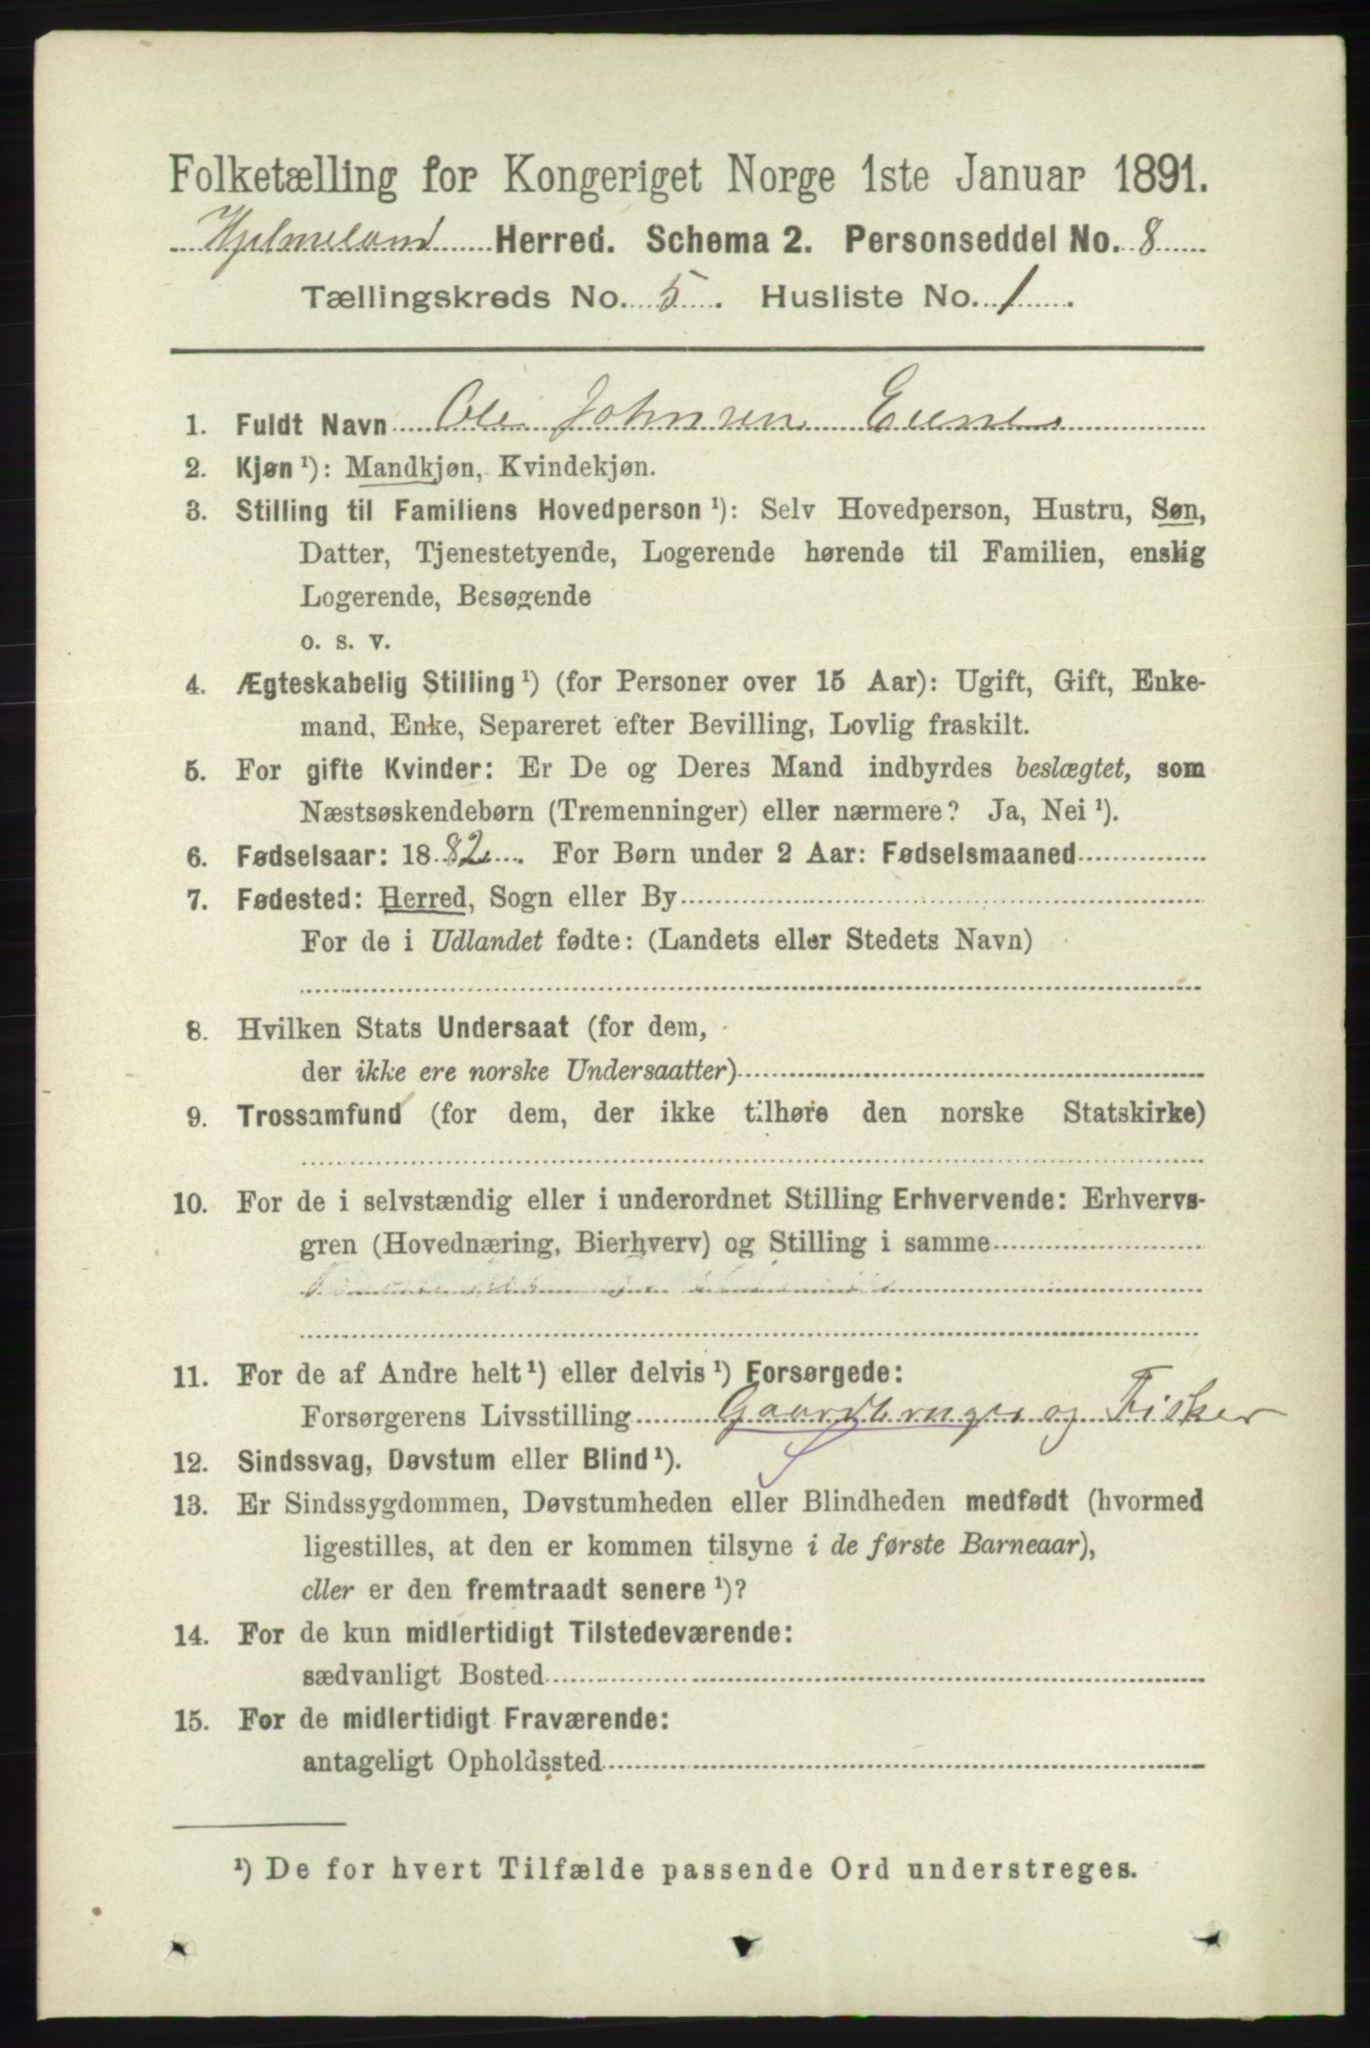 Folketælling for Kongeriget Norge 1ste Januar 1891.
Hjelmeland Herred. Schema 2. Personseddel No. 8
Tællingskreds No. 5. Husliste No. 1.
1. Fuldt Navn Ole Johnsen
2. Kjøn ¹): Mandkjøn, Kvindekjøn.
3. Stilling til Familiens Hovedperson ¹): Selv Hovedperson, Hustru, Søn,
Datter, Tjenestetyende, Logerende hørende til Familien, enslig
Logerende, Besøgende
o. s. v.
4. Ægteskabelig Stilling ¹) (for Personer over 15 Aar): Ugift, Gift, Enke-
mand, Enke, Separeret efter Bevilling, Lovlig fraskilt.
5. For gifte Kvinder: Er De og Deres Mand indbyrdes beslægtet, som
Næstsøskendebørn (Tremenninger) eller nærmere? Ja, Nei ¹).
6. Fødselsaar: 1882. For Børn under 2 Aar: Fødselsmaaned
7. Fødested: Herred, Sogn eller By
For de i Udlandet fødte: (Landets eller Stedets Navn)
8. Hvilken Stats Undersaat (for dem,
der ikke ere norske Undersaatter)
9. Trossamfund (for dem, der ikke tilhøre den norske Statskirke)
10. For de i selvstændig eller i underordnet Stilling Erhvervende: Erhvervs-
gren (Hovednæring, Bierhverv) og Stilling i samme
11. For de af Andre helt ¹) eller delvis ¹) Forsørgede:
Forsørgerens Livsstilling Gaardbruger og Fisker
12. Sindssvag, Døvstum eller Blind ¹).
13. Er Sindssygdommen, Døvstumheden eller Blindheden medfødt (hvormed
ligestilles, at den er kommen tilsyne i de første Barneaar),
eller er den fremtraadt senere ¹)?
14. For de kun midlertidigt Tilstedeværende:
sædvanligt Bosted
15. For de midlertidigt Fraværende:
antageligt Opholdssted
¹) De for hvert Tilfælde passende Ord understreges.